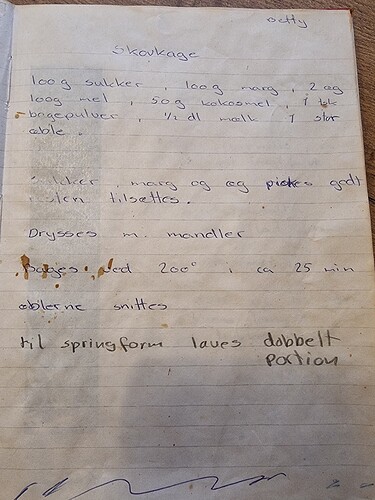 Betty
Skovkage
100g sukker, 100g marg, 2 æg
100g mel, 50g kokosmel, 1 tsk
bagepulver, ½ dl mælk 1 stor
æble.
Sukker, marg og æg piskes godt
resten tilsættes.
Drysses m. mandler
Bages ved 200° i ca 25 min
æblerne snittes
til springform laves dobbelt
portion